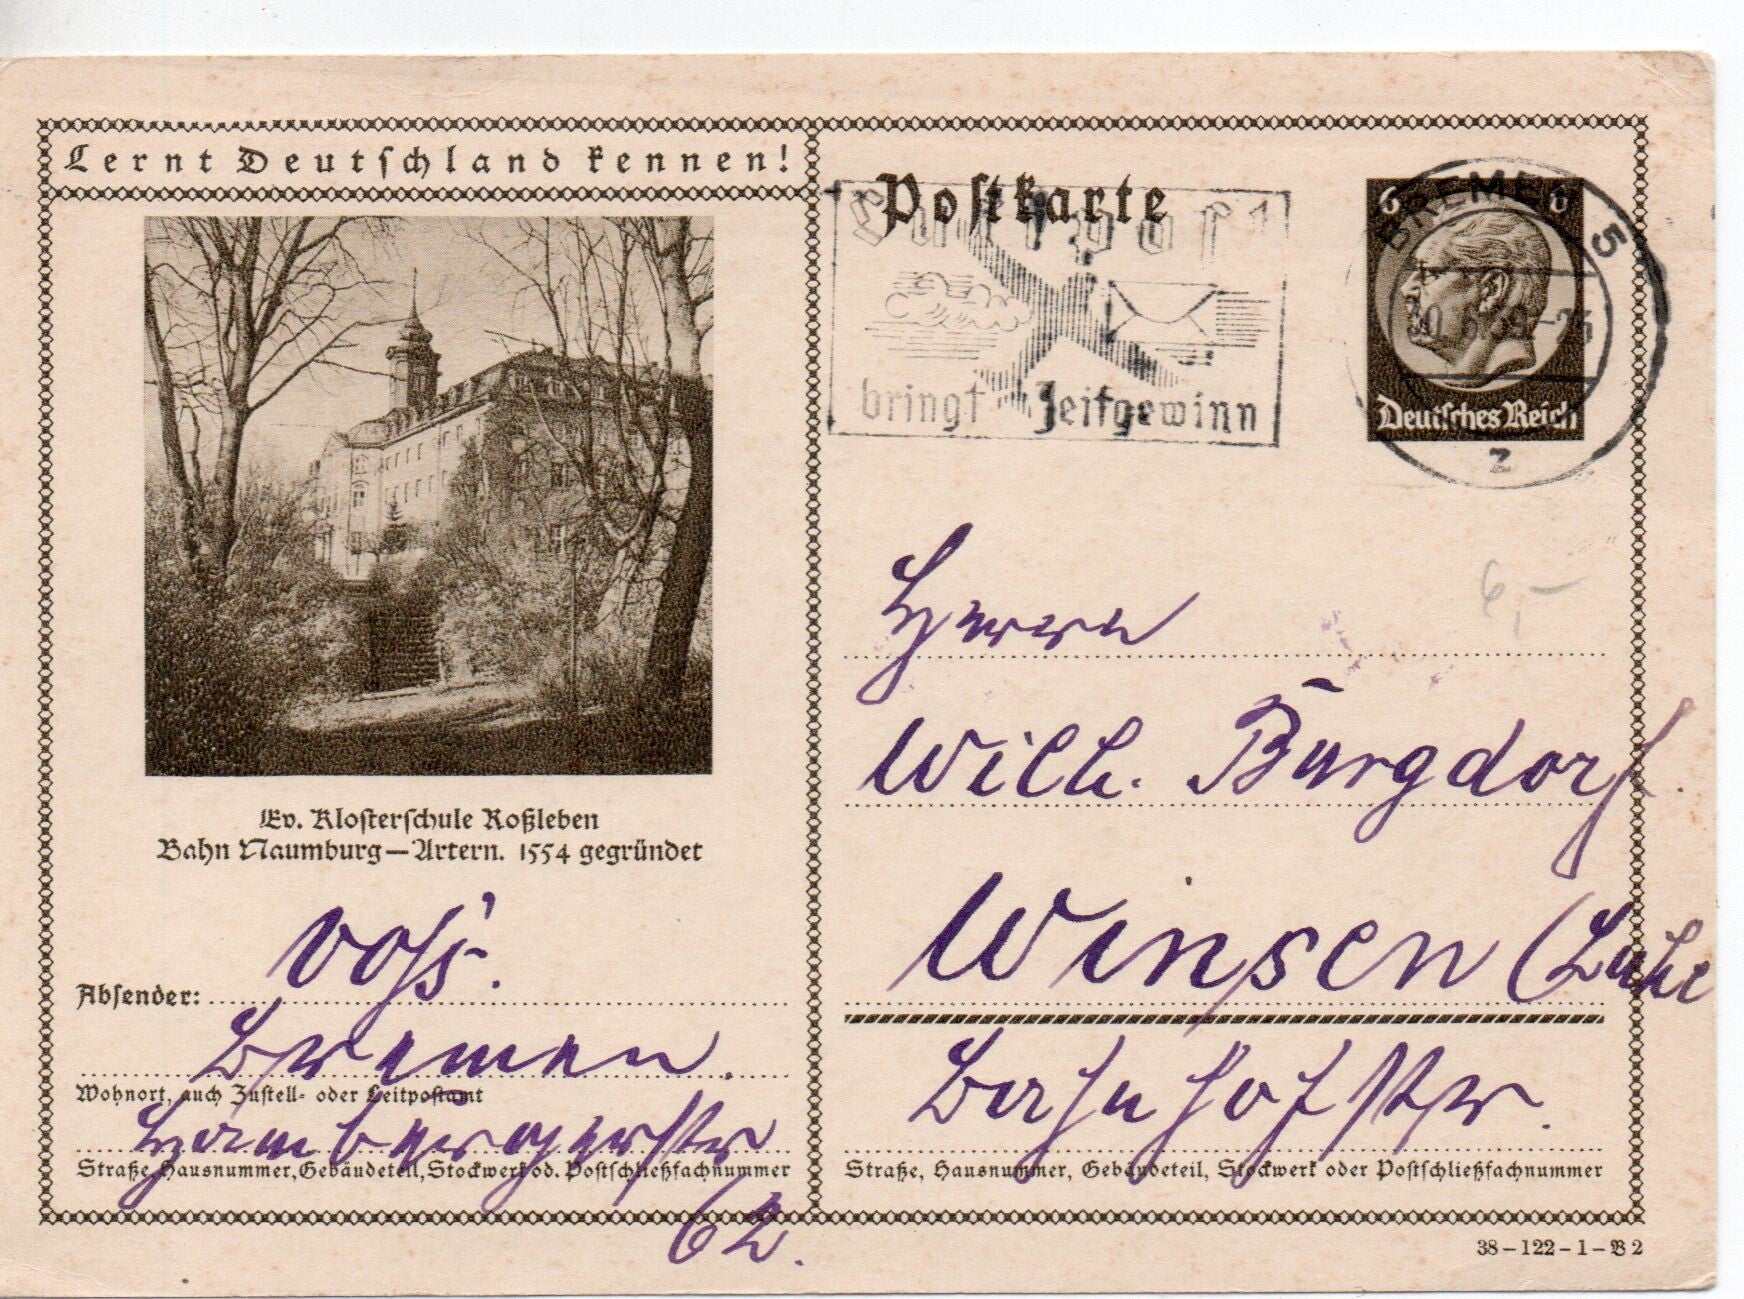 Lernt Deutschland kennen!
Ev. Klosterschule Roßleben
Bahn Naumburg—Artern. 1554 gegründet
Absender: Voss.
Bremen.
Wohnort, auch Zustell- oder Leitpostamt
Hambergerstr
Straße, Hausnummer, Gebäudeteil, Stockwerk od. Postschließfachnummer
62.
Postkarte
Luftpost
bringt Zeitgewinn
BREMEN 5
z
6 6
Deutsches Reich
6,–
Herrn
Wilh. Burgdorf.
Winsen (Luhe
Bahnhofstr.
Straße, Hausnummer, Gebäudeteil, Stockwerk oder Postschließfachnummer
38–122–1–B 2